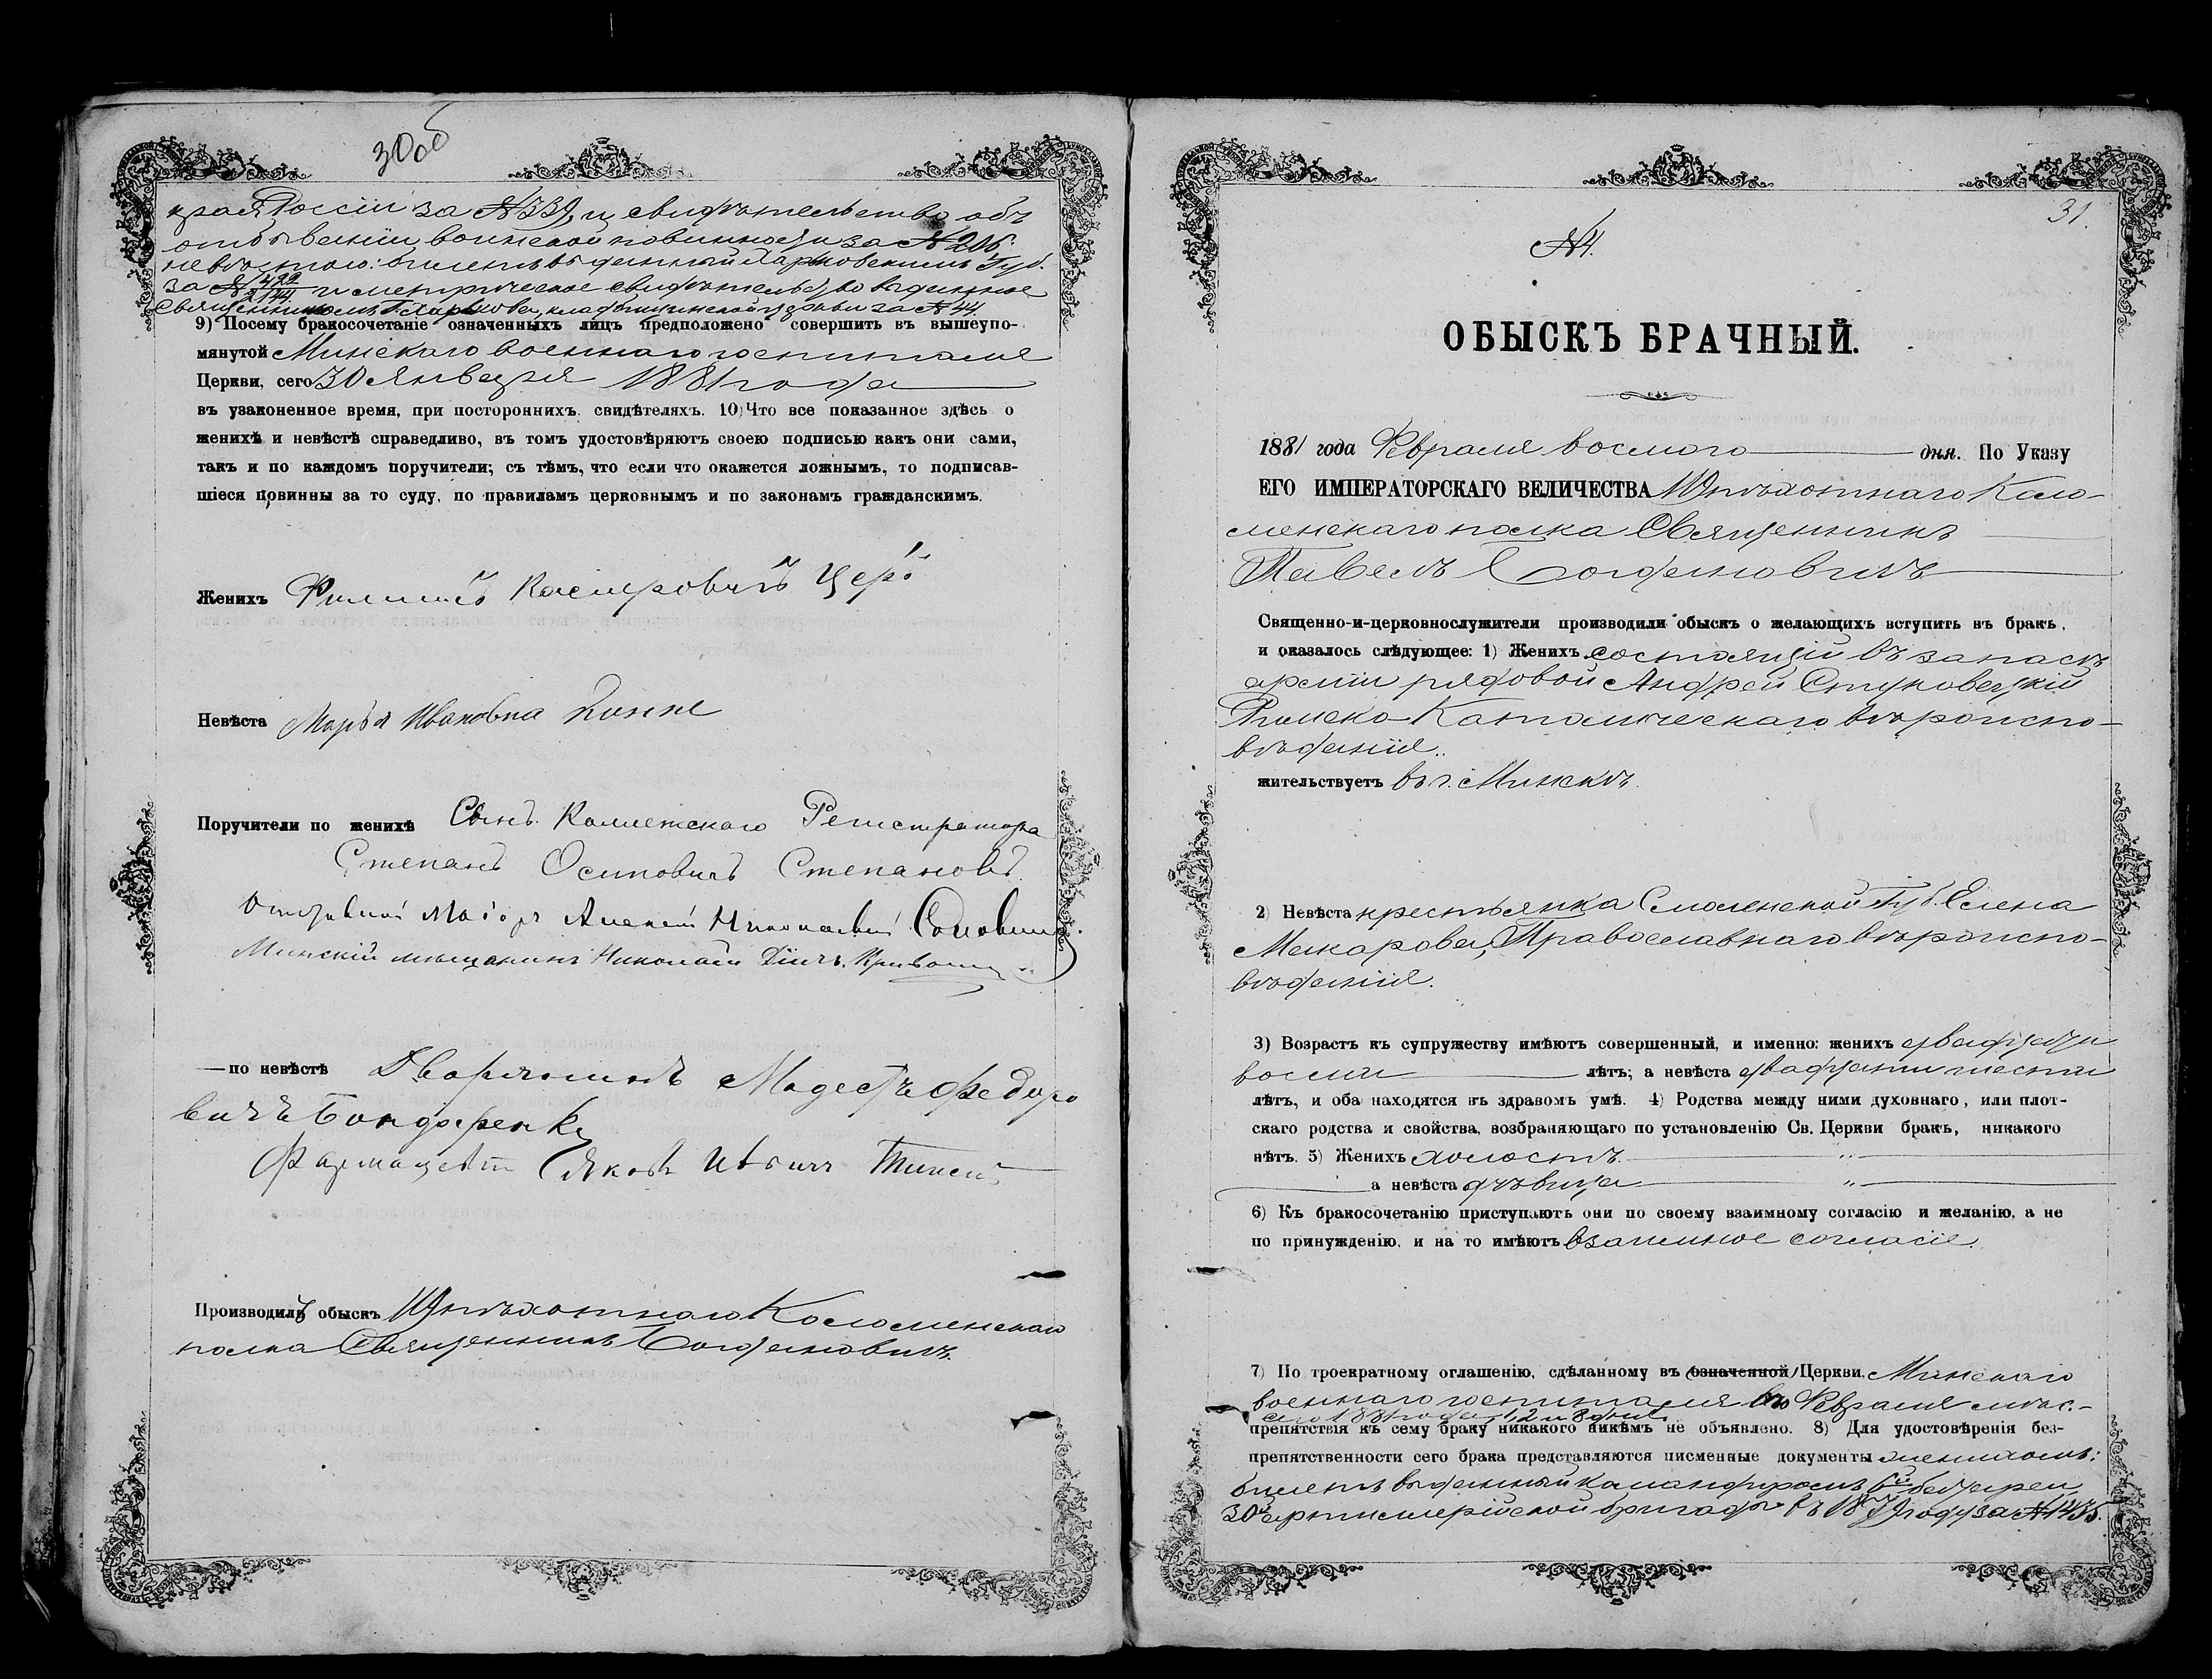 30об
края Россіи за №339, и свидѣтельство объ
отбываніи воинской повинности за №206.
невѣстою: билетъ выданный Харьковскимъ Губ.
за № 2144 и метрическое свидѣтельство выданное
Священникомъ Г. Харькова, кладбищенской церкви за №44.
9) Посему бракосочетаніе означенныхъ лицъ предположено совершить въ вышеупо-
мянутой Минскаго военнаго госпиталя
Церкви, сего 30 Января 1881 года
въ узаконенное время, при постороннихъ свидѣтеляхъ. 10) Что все показанное здѣсь о
женихѣ и невѣстѣ справедливо, въ томъ удостовѣряютъ своею подписью какъ они сами,
такъ и по каждомъ поручители; съ тѣмъ, что если что окажется ложнымъ, то подписав-
шіеся повинны за то суду, по правиламъ церковнымъ и по законамъ гражданскимъ.
Женихъ Филиппъ
Невѣста Марья Ивановна
Поручители по женихѣ Сынъ Коллежскаго Регистратора
Степанъ Осиповичъ Степановъ
Отставной Маіоръ Алексѣй Николаевичъ
Минскій мѣщанинъ Николай
— по невѣстѣ Дворянинъ Модестъ Федоро
вичъ Бондаренко
Фармацевтъ Яковъ
Производилъ обыскъ Пѣхотнаго Коломенскаго
полка Священникъ Богдановичъ.
31.
№4.
ОБЫСКЪ БРАЧНЫЙ.
1881 года Февраля восьмого дня. По Указу
ЕГО ИМПЕРАТОРСКАГО ВЕЛИЧЕСТВА Пѣхотнаго Коло-
менскаго полка Священникъ
Павелъ Богдановичъ
Священно-и-церковнослужители производили обыскъ о желающихъ вступить въ бракъ,
и оказалось слѣдующее: 1) Женихъ состоящій въ запасѣ
арміи рядовой Андрей
Римско-Католическаго вѣроиспо-
вѣданія.
жительствуетъ въ г. Минскѣ.
2) Невѣста крестьянка Смоленской Губ. Елена
Макарова, Православнаго вѣроиспо-
вѣданія.
3) Возрастъ къ супружеству имѣютъ совершенный, и именно: женихъ двадцати
восьми лѣтъ; а невѣста двадцати шести
лѣтъ, и оба находятся въ здравомъ умѣ. 4) Родства между ними духовнаго, или плот-
скаго родства и свойства, возбраняющаго по установленію Св. Церкви бракъ, никакого
нѣтъ. 5) Женихъ холостъ. "
а невѣста дѣвица "
6) Къ бракосочетанію приступаютъ они по своему взаимному согласію и желанію, а не
по принужденію, и на то имѣютъ взаимное согласіе.
7) По троекратному оглашенію, сдѣланному въ (означенной) Церкви, Минскаго
военнаго госпиталя Февраля мѣс.
сего 1881 года 1, 2 и 8 дня
препятствія къ сему браку никакого никѣмъ не объявлено. 8) Для удостовѣренія без-
препятственности сего брака представляются писменные документы женихомъ:
билетъ выданный командиромъ 6й батареи
30й артиллерійской бригады въ 1879 году за №1435.